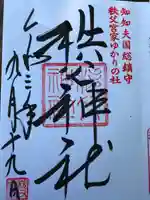 知知夫国総鎮守
秩父宮家ゆかりの社
秩父神社
九月十九日